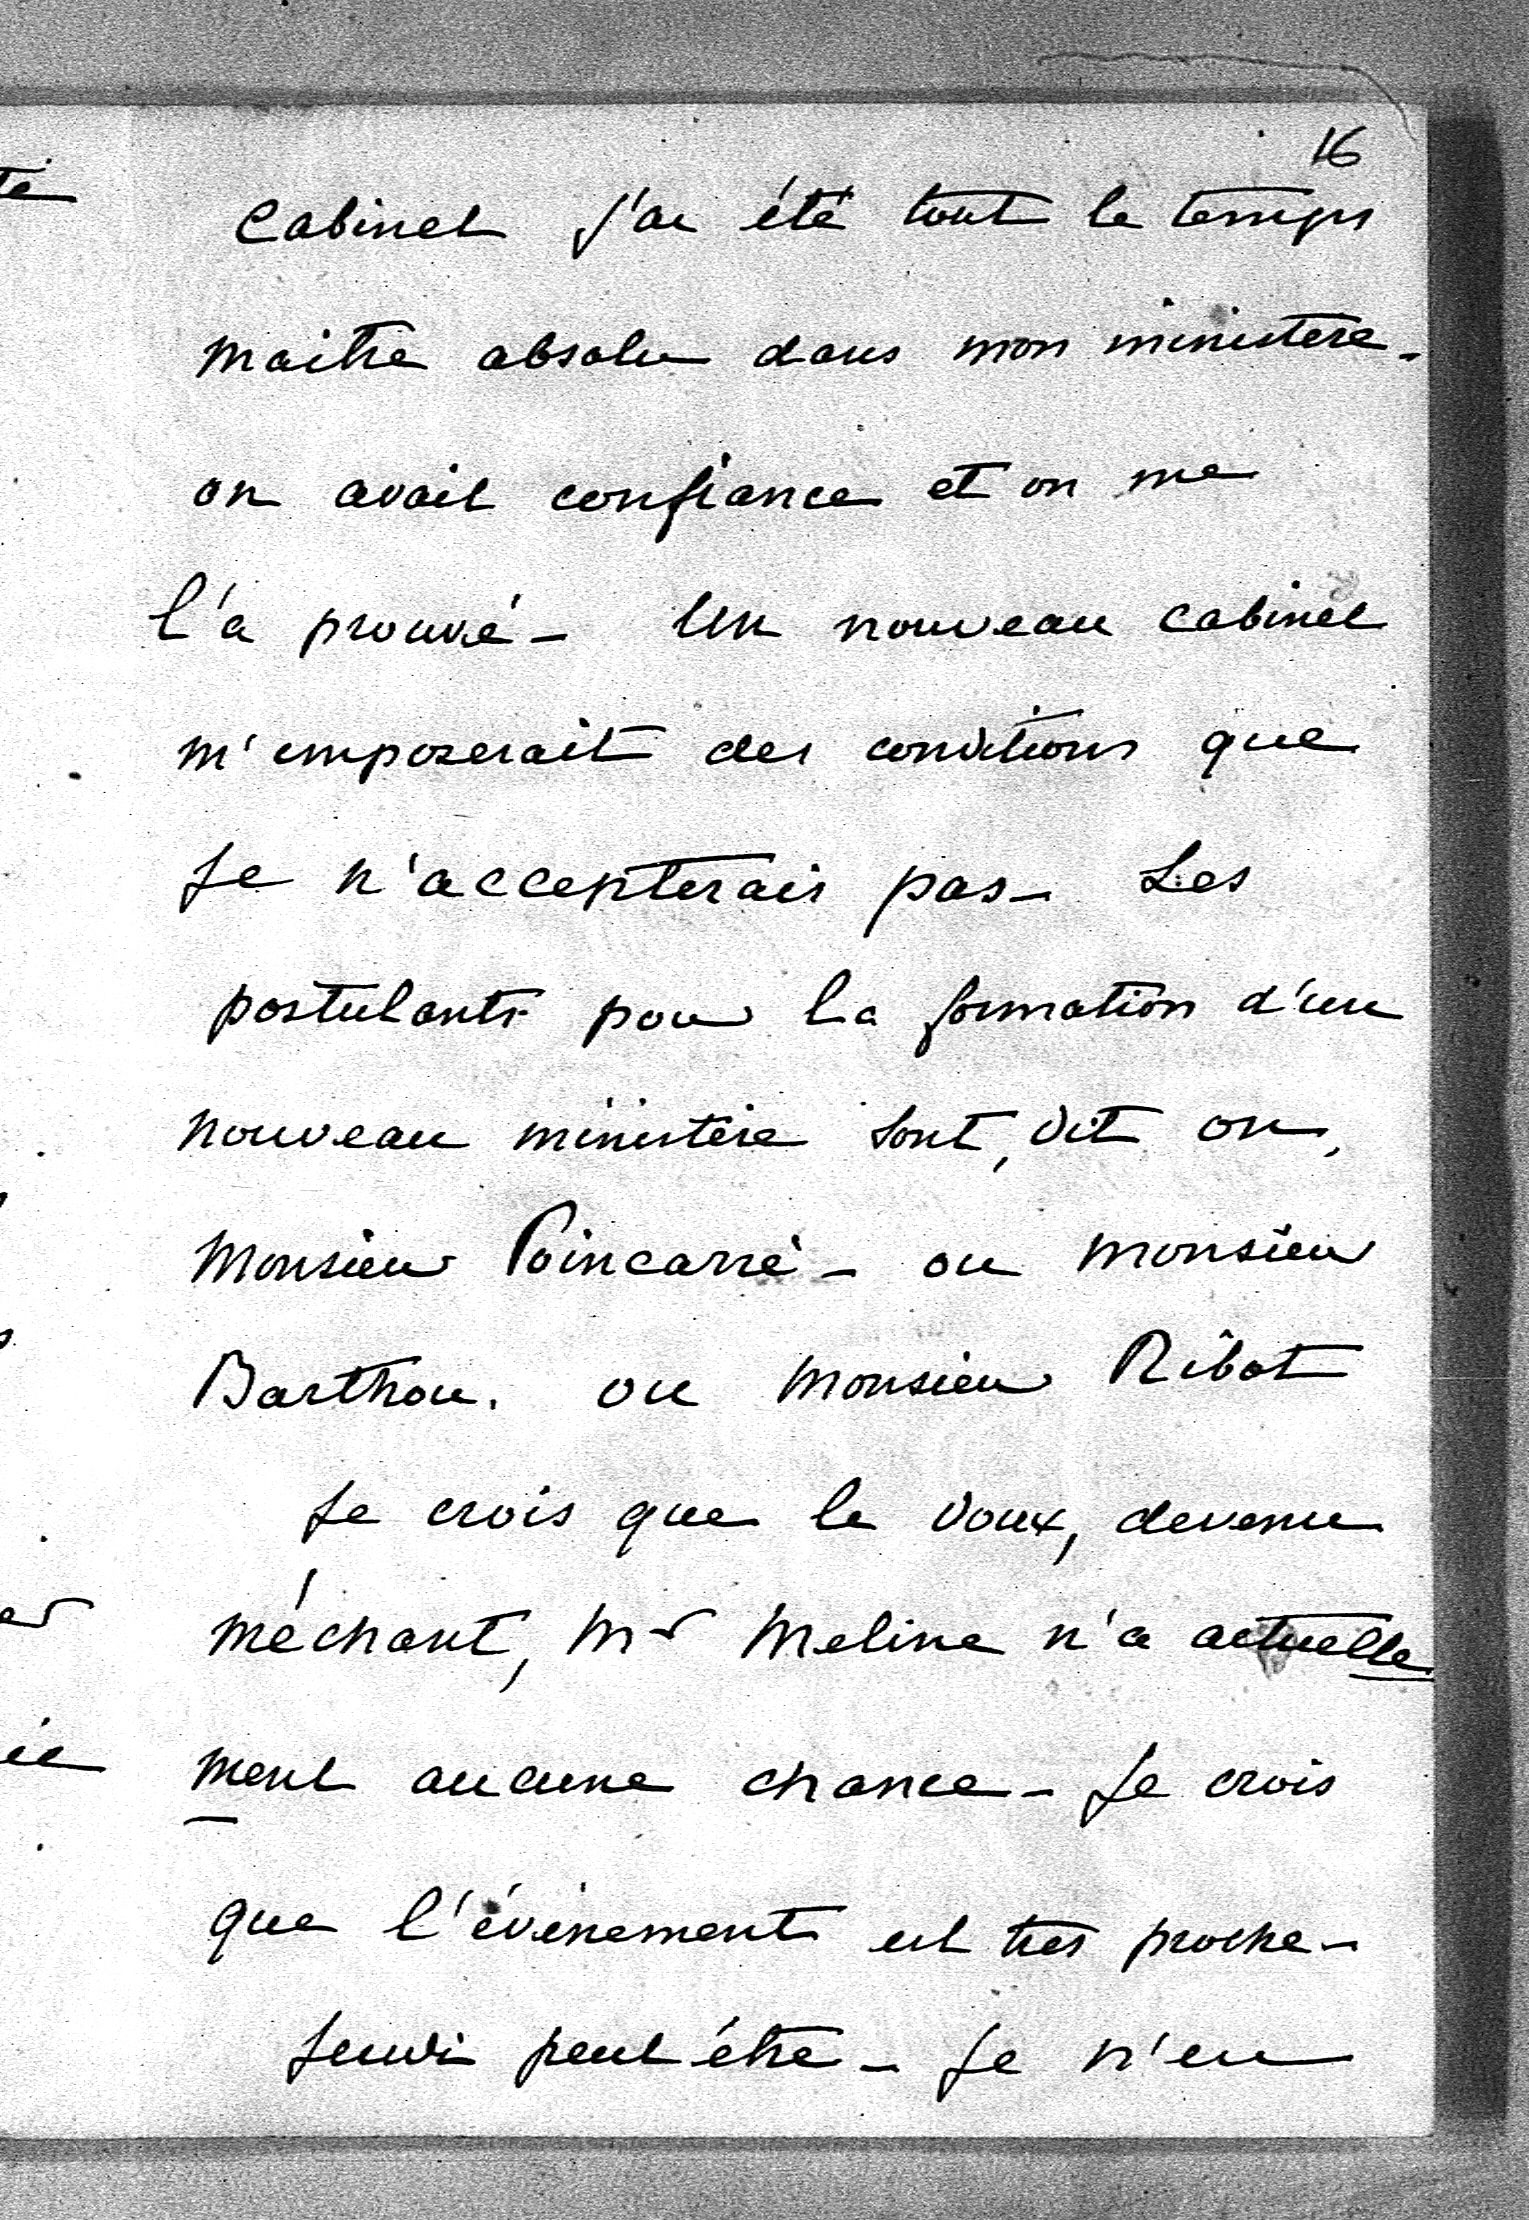 16
Cabinet j'ai été tout le temps
maitre absolu dans mon ministère.
on avait confiance et on me
l'a prouvé - Un nouveau cabinet
m'imposerait des conditions que
je n'accepterais pas - Les
postulants pour la formation d'un
nouveau ministère sont, dit on,
Monsieur Poincarré - ou monsieur
Barthou. ou Monsieur Ribot
Je crois que le doux, devenu
méchant, Mr Meline n'a actuelle
ment aucune chance - Je crois
que l'événement est très proche -
Jeudi peut être - Je n'en